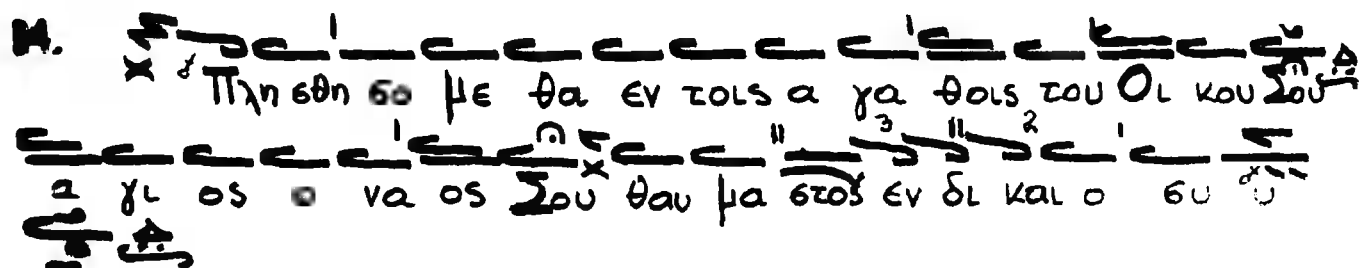 Μ. Πλη σθη σο με θα εν τοις α γα θοις του Οι κου Σου
α γι ος ο να ος Σου θαυ μα στος εν δι και ο συ υ